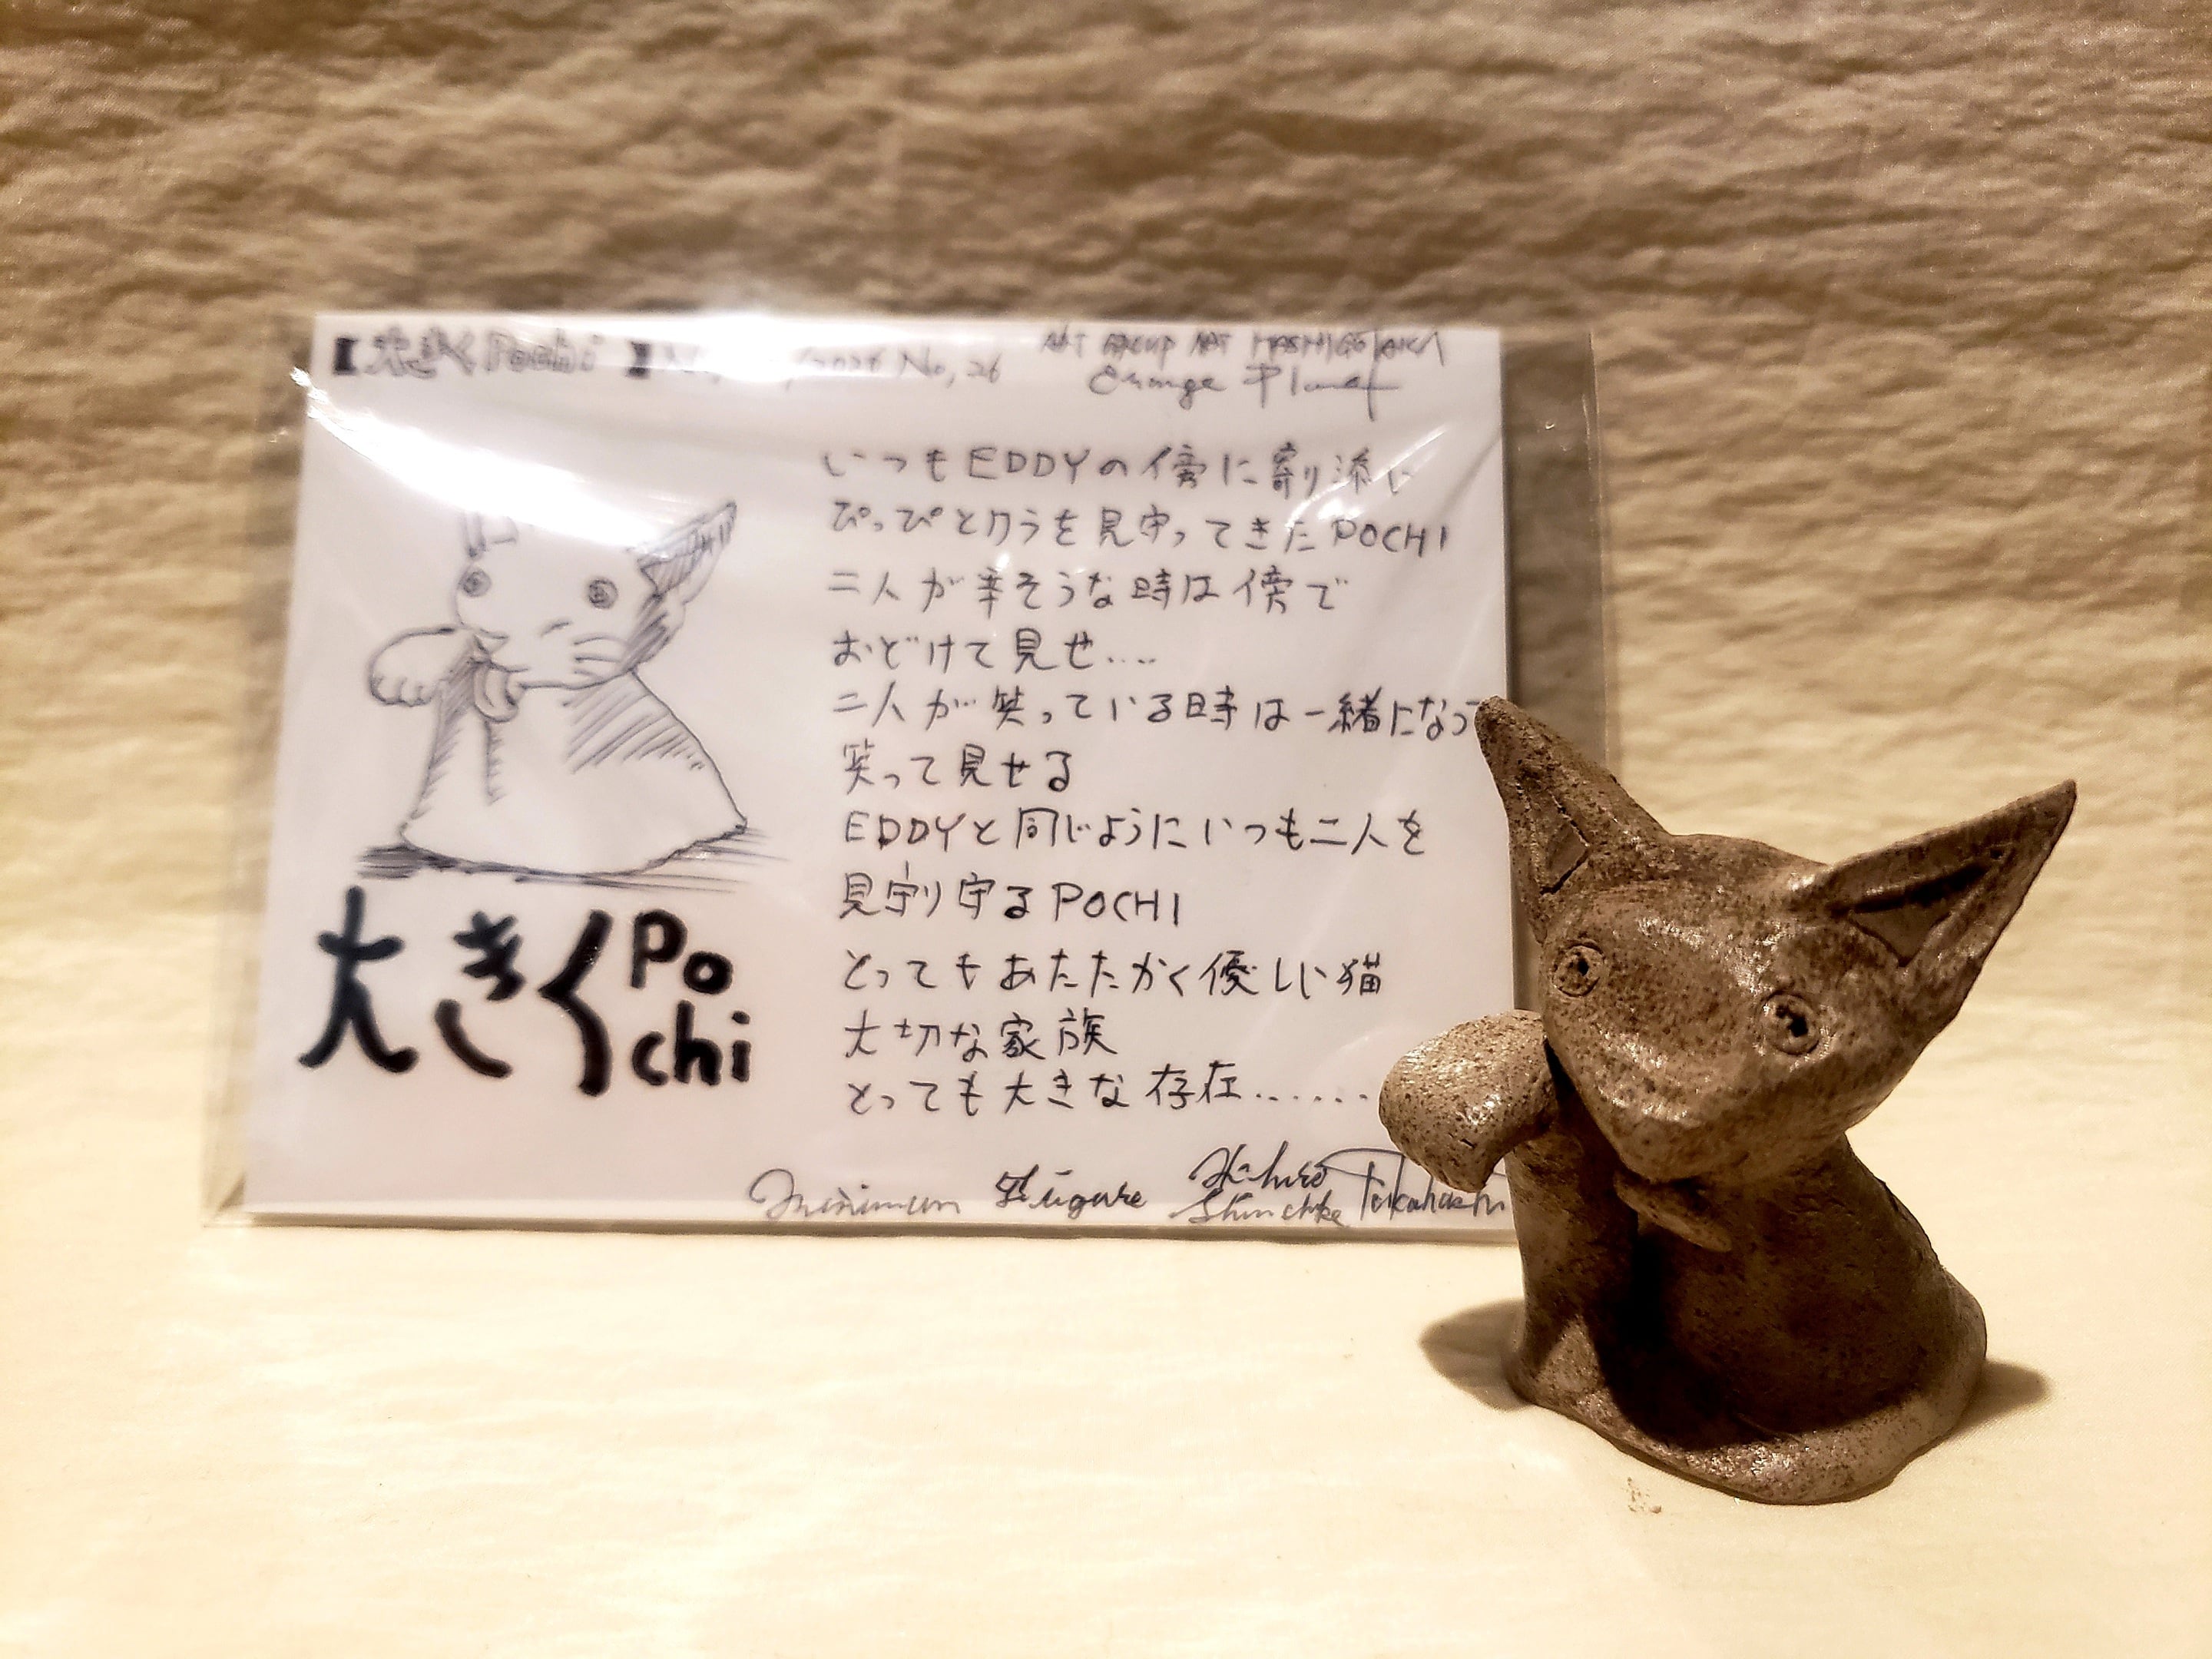 【大きくPochi】 2026 No,26
ART GROUP ART HASHIGOTAKA
Orange Planet
いつもEDDYの傍に寄り添い
ぴっぴとクラを見守ってきたPOCHI
二人が辛そうな時は傍で
おどけて見せ....
二人が笑っている時は一緒になって
笑って見せる
EDDYと同じようにいつも二人を
見守り守るPOCHI
とってもあたたかく優しい猫
大切な家族
とっても大きな存在......
大きくPochi
minimum Figure Akihiro Takahashi